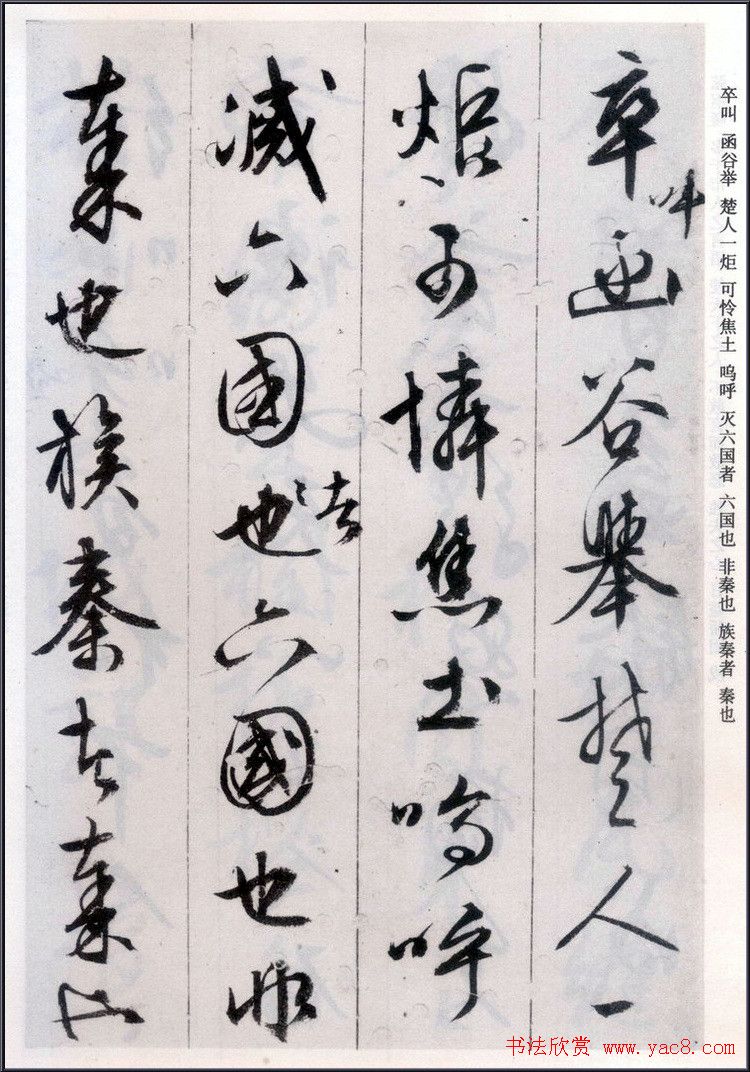 卒叫 函谷举 楚人一炬 可怜焦土 呜呼 灭六国者 六国也 非秦也 族秦者 秦也
卒叫函谷舉楚人一
炬可憐焦土嗚呼
滅六國也者六國也非
秦也族秦者秦也
书法欣赏 www.yac8.com